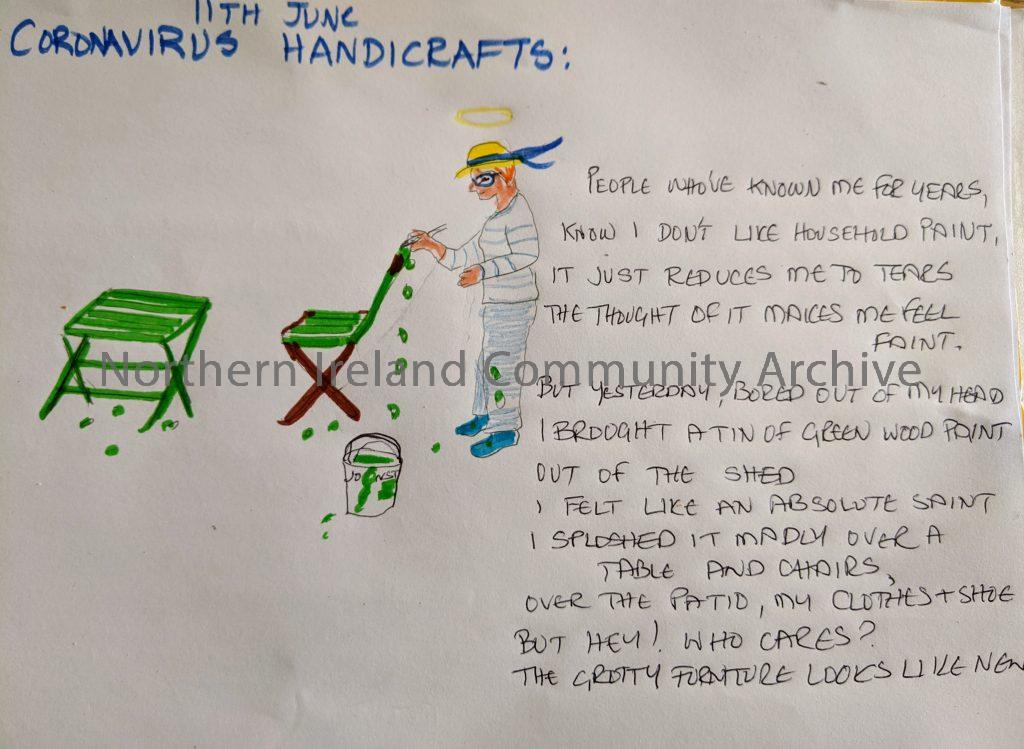 11TH JUNE
CORONAVIRUS HANDICRAFTS:
PEOPLE WHO'VE KNOWN ME FOR YEARS,
KNOW I DON'T LIKE HOUSEHOLD PAINT,
IT JUST REDUCES ME TO TEARS
THE THOUGHT OF IT MAKES ME FEEL
FAINT.
Northern Ireland Community Archive
BUT YESTERDAY, BORED OUT OF MY HEAD
I BROUGHT A TIN OF GREEN WOOD PAINT
OUT OF THE SHED
I FELT LIKE AN ABSOLUTE SAINT
I SPLOSHED IT MADLY OVER A
TABLE AND CHAIRS,
OVER THE PATIO, MY CLOTHES + SHOE
BUT HEY! WHO CARES?
THE GROTTY FURNITURE LOOKS LIKE NEW